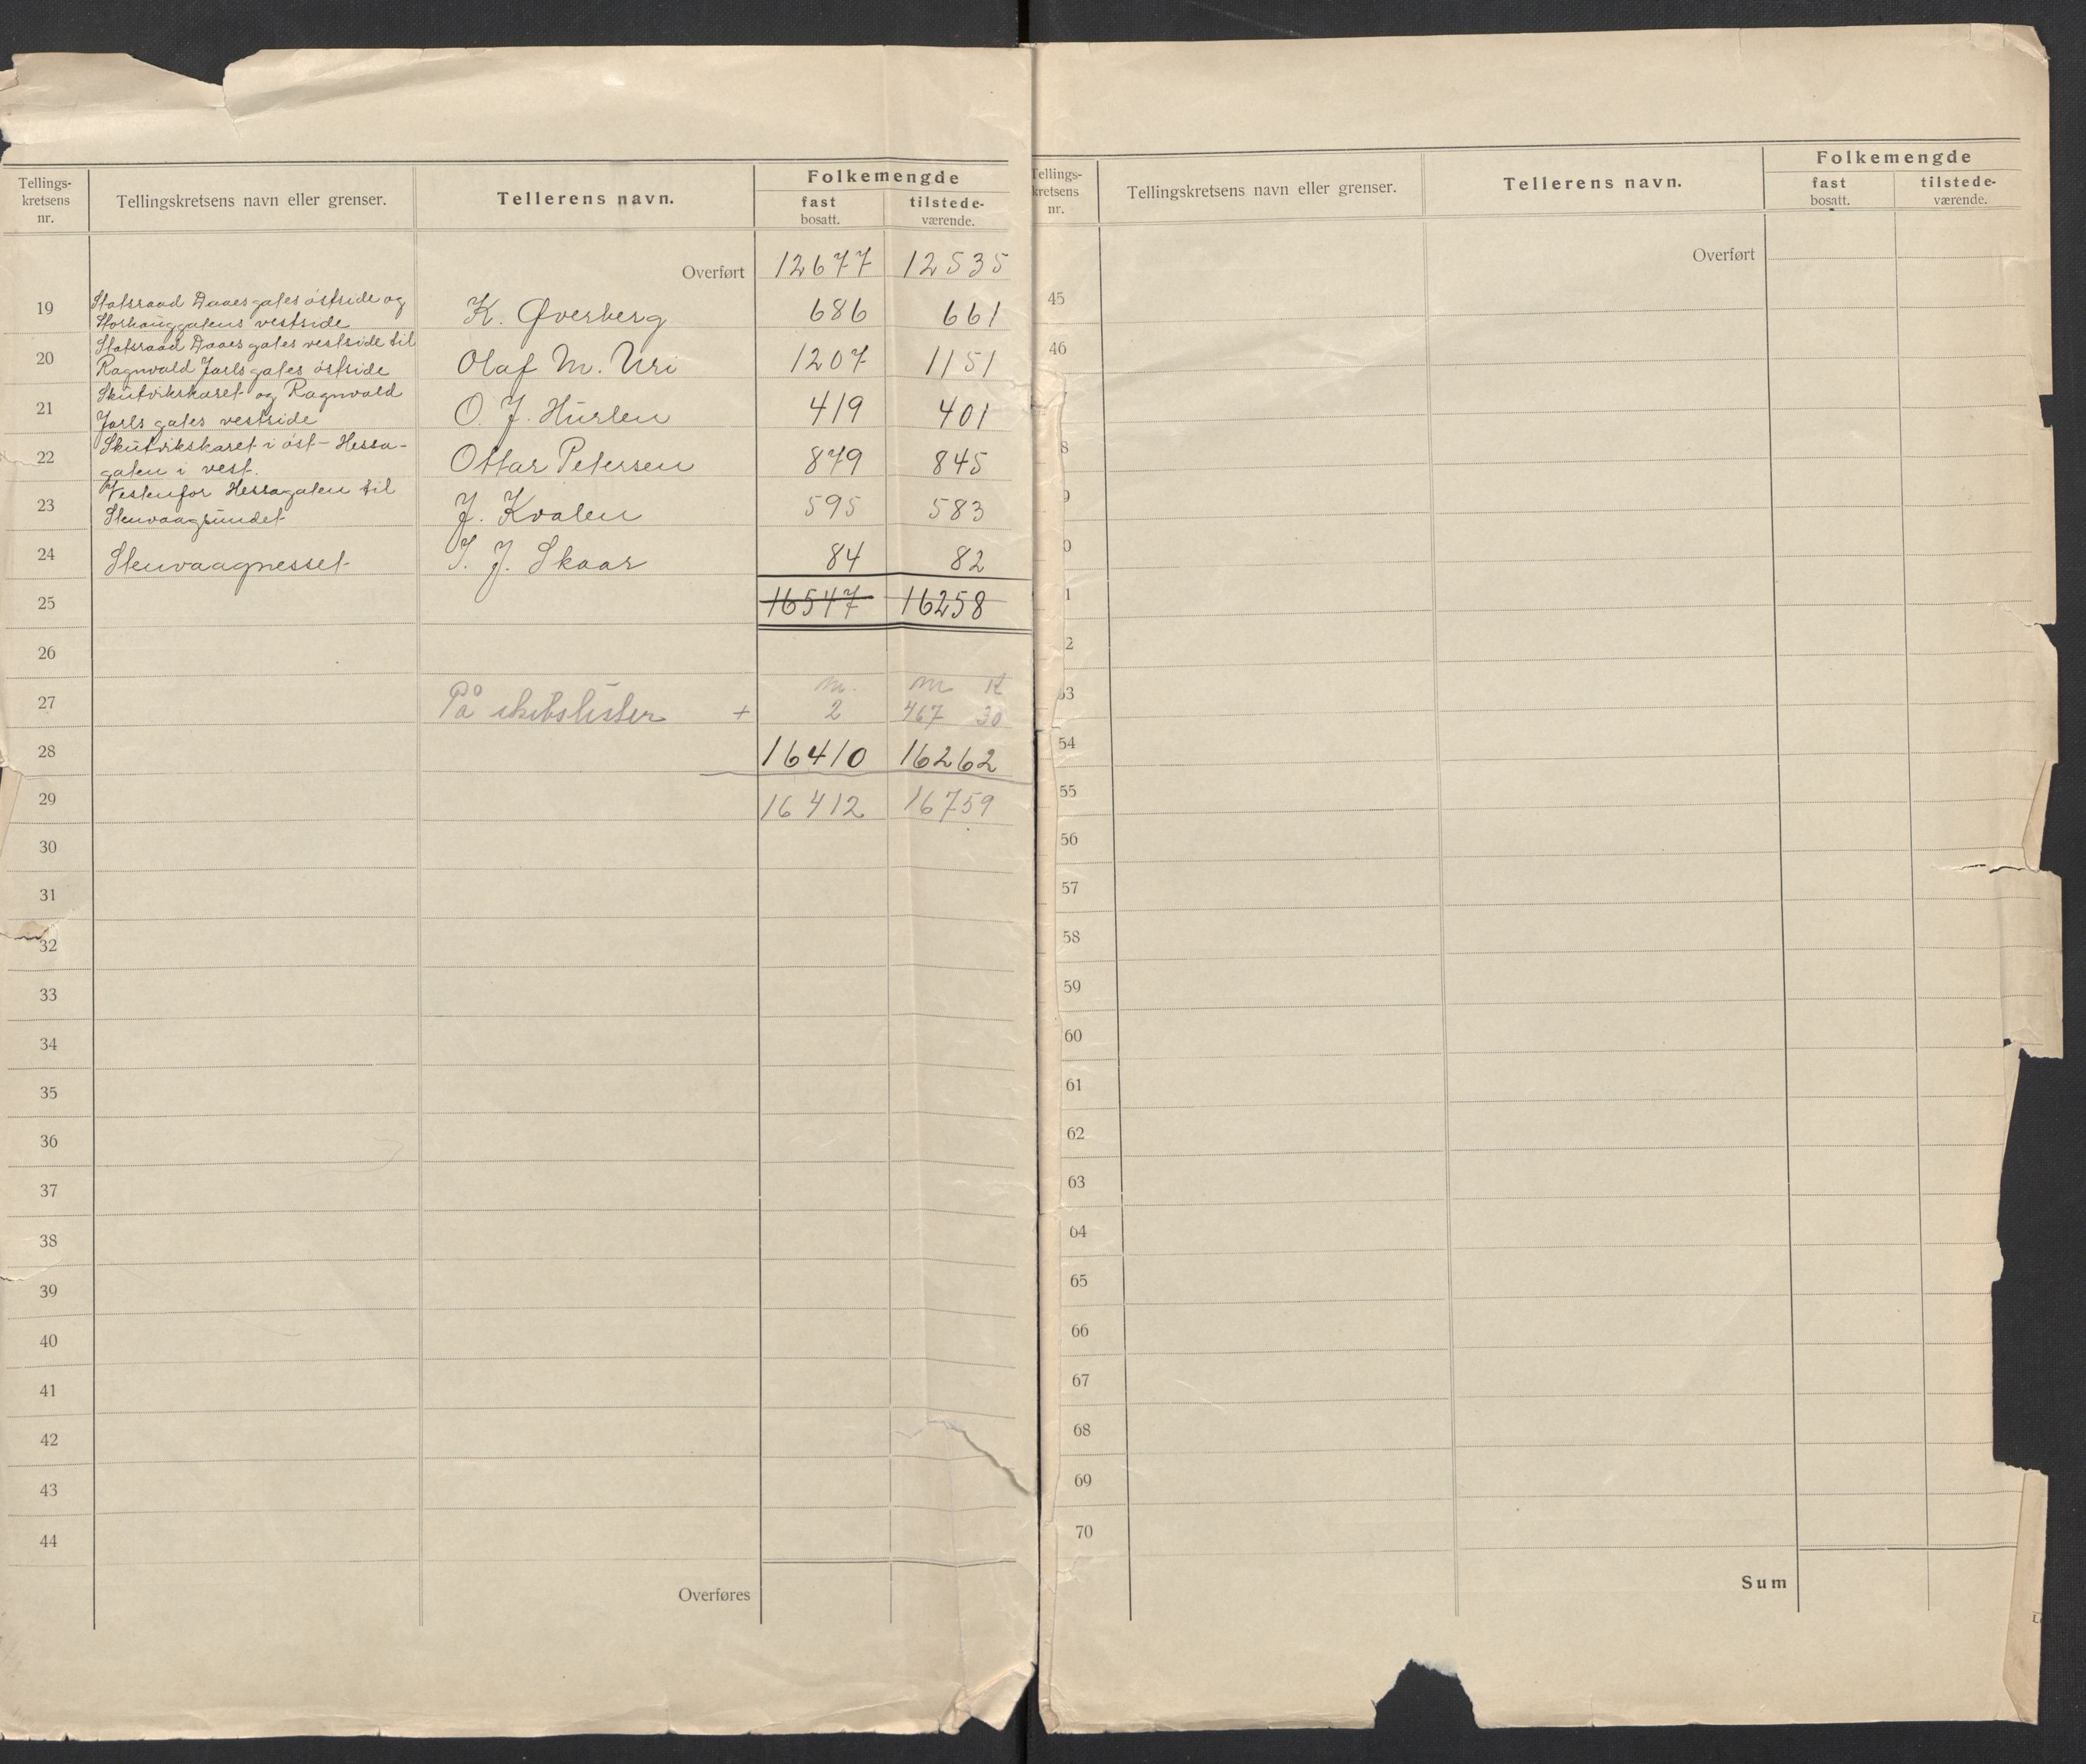 Tellings-
kretsens
nr.
Tellingskretsens navn eller grenser.
Tellerens navn.
Folkemengde
fast
bosatt.
tilstede-
værende.
Overført 12677 12535
19 Statsraad Daaes gates østside og
Storhauggatens vestside K. Øverberg 686 661
20 Statsraad Daaes gates vestside til
Ragnvald Jarls gates østside Olaf M. Uri 1207 1151
21 Skutvikskaret og Ragnvald
Jarls gates vestside O. J. Hurlen 419 401
22 Skutvikskaret i øst - Hessa-
gaten i vest. Ottar Petersen 879 845
23 Vestenfor Hessagaten til
Stenvaagsundet J. Kvalen 595 583
24 Stenvaagnesset J. J. Skaar 84 82
25 16547 16258
26
m. m k
27 På skibslister + 2 467 30
28 16410 16262
29 16412 16759
30
31
32
33
34
35
36
37
38
39
40
41
42
43
44
Overføres
Tellings-
kretsens
nr.
Tellingskretsens navn eller grenser.
Tellerens navn.
Folkemengde
fast
bosatt.
tilstede-
værende.
Overført
45
46
8
9
0
1
2
53
54
55
56
57
58
59
60
61
62
63
64
65
66
67
68
69
70
Sum